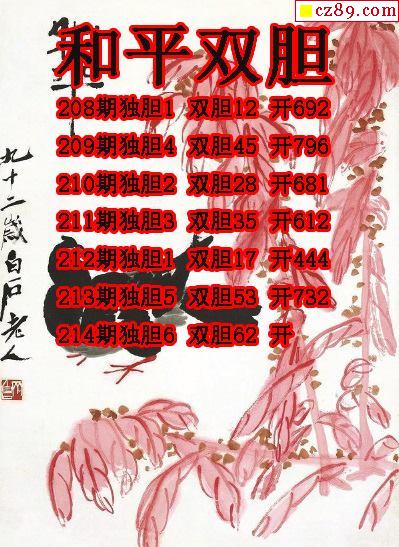 cz89.com
和平双胆
208期独胆1 双胆12 开692
209期独胆4 双胆45 开796
210期独胆2 双胆28 开681
211期独胆3 双胆35 开612
212期独胆1 双胆17 开444
213期独胆5 双胆53 开732
214期独胆6 双胆62 开
九十二岁白石老人